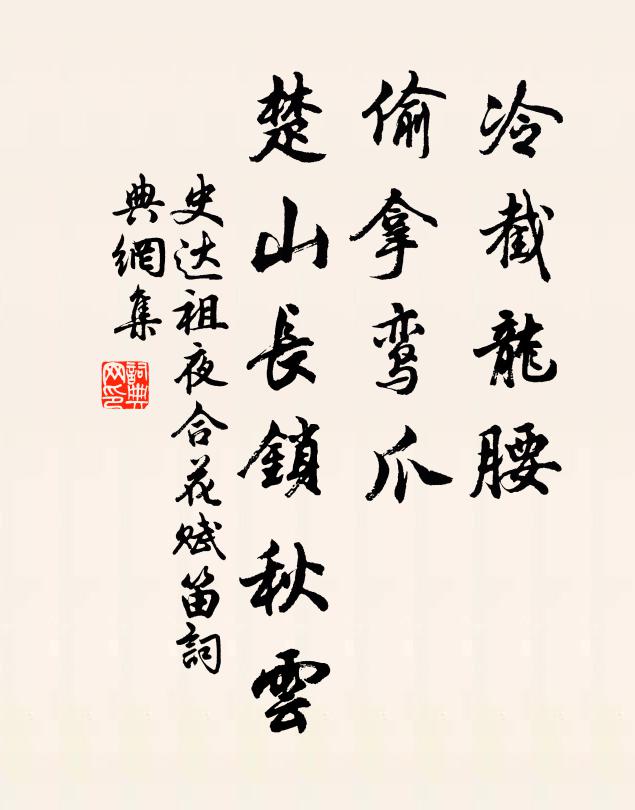 冷截龍腰
偷拿鸾爪
楚山長鎖秋雲
史达祖夜合花賦笛詞
典網集
詞典網印